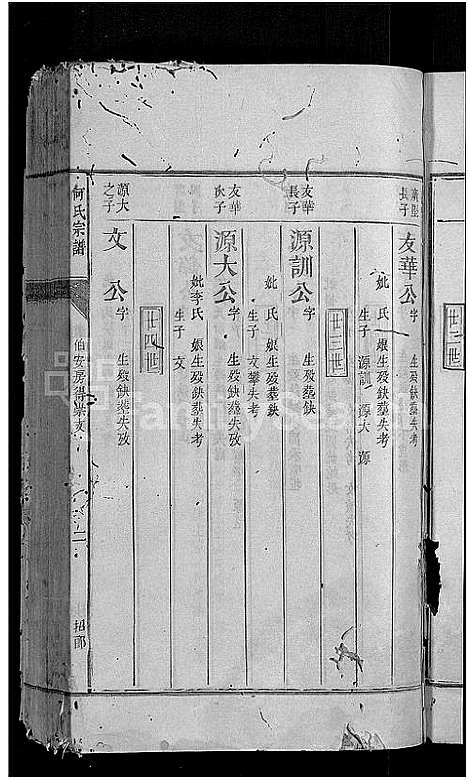 長子
友華公
字 生歿缺葬失考
妣 氏 娘生歿缺葬失考
生子 源訓 源大 源
廿三世
友華長子
源訓公
字 生歿葬缺
妣 氏 娘生歿葬缺
生子 文攀失考
友華次子
源大公
字 生歿缺葬失攷
妣李氏 娘生歿缺葬失考
生子 文
廿四世
源大之子
文 公
字 生歿缺葬失攷
何氏宗譜
伯安房得崇支
二